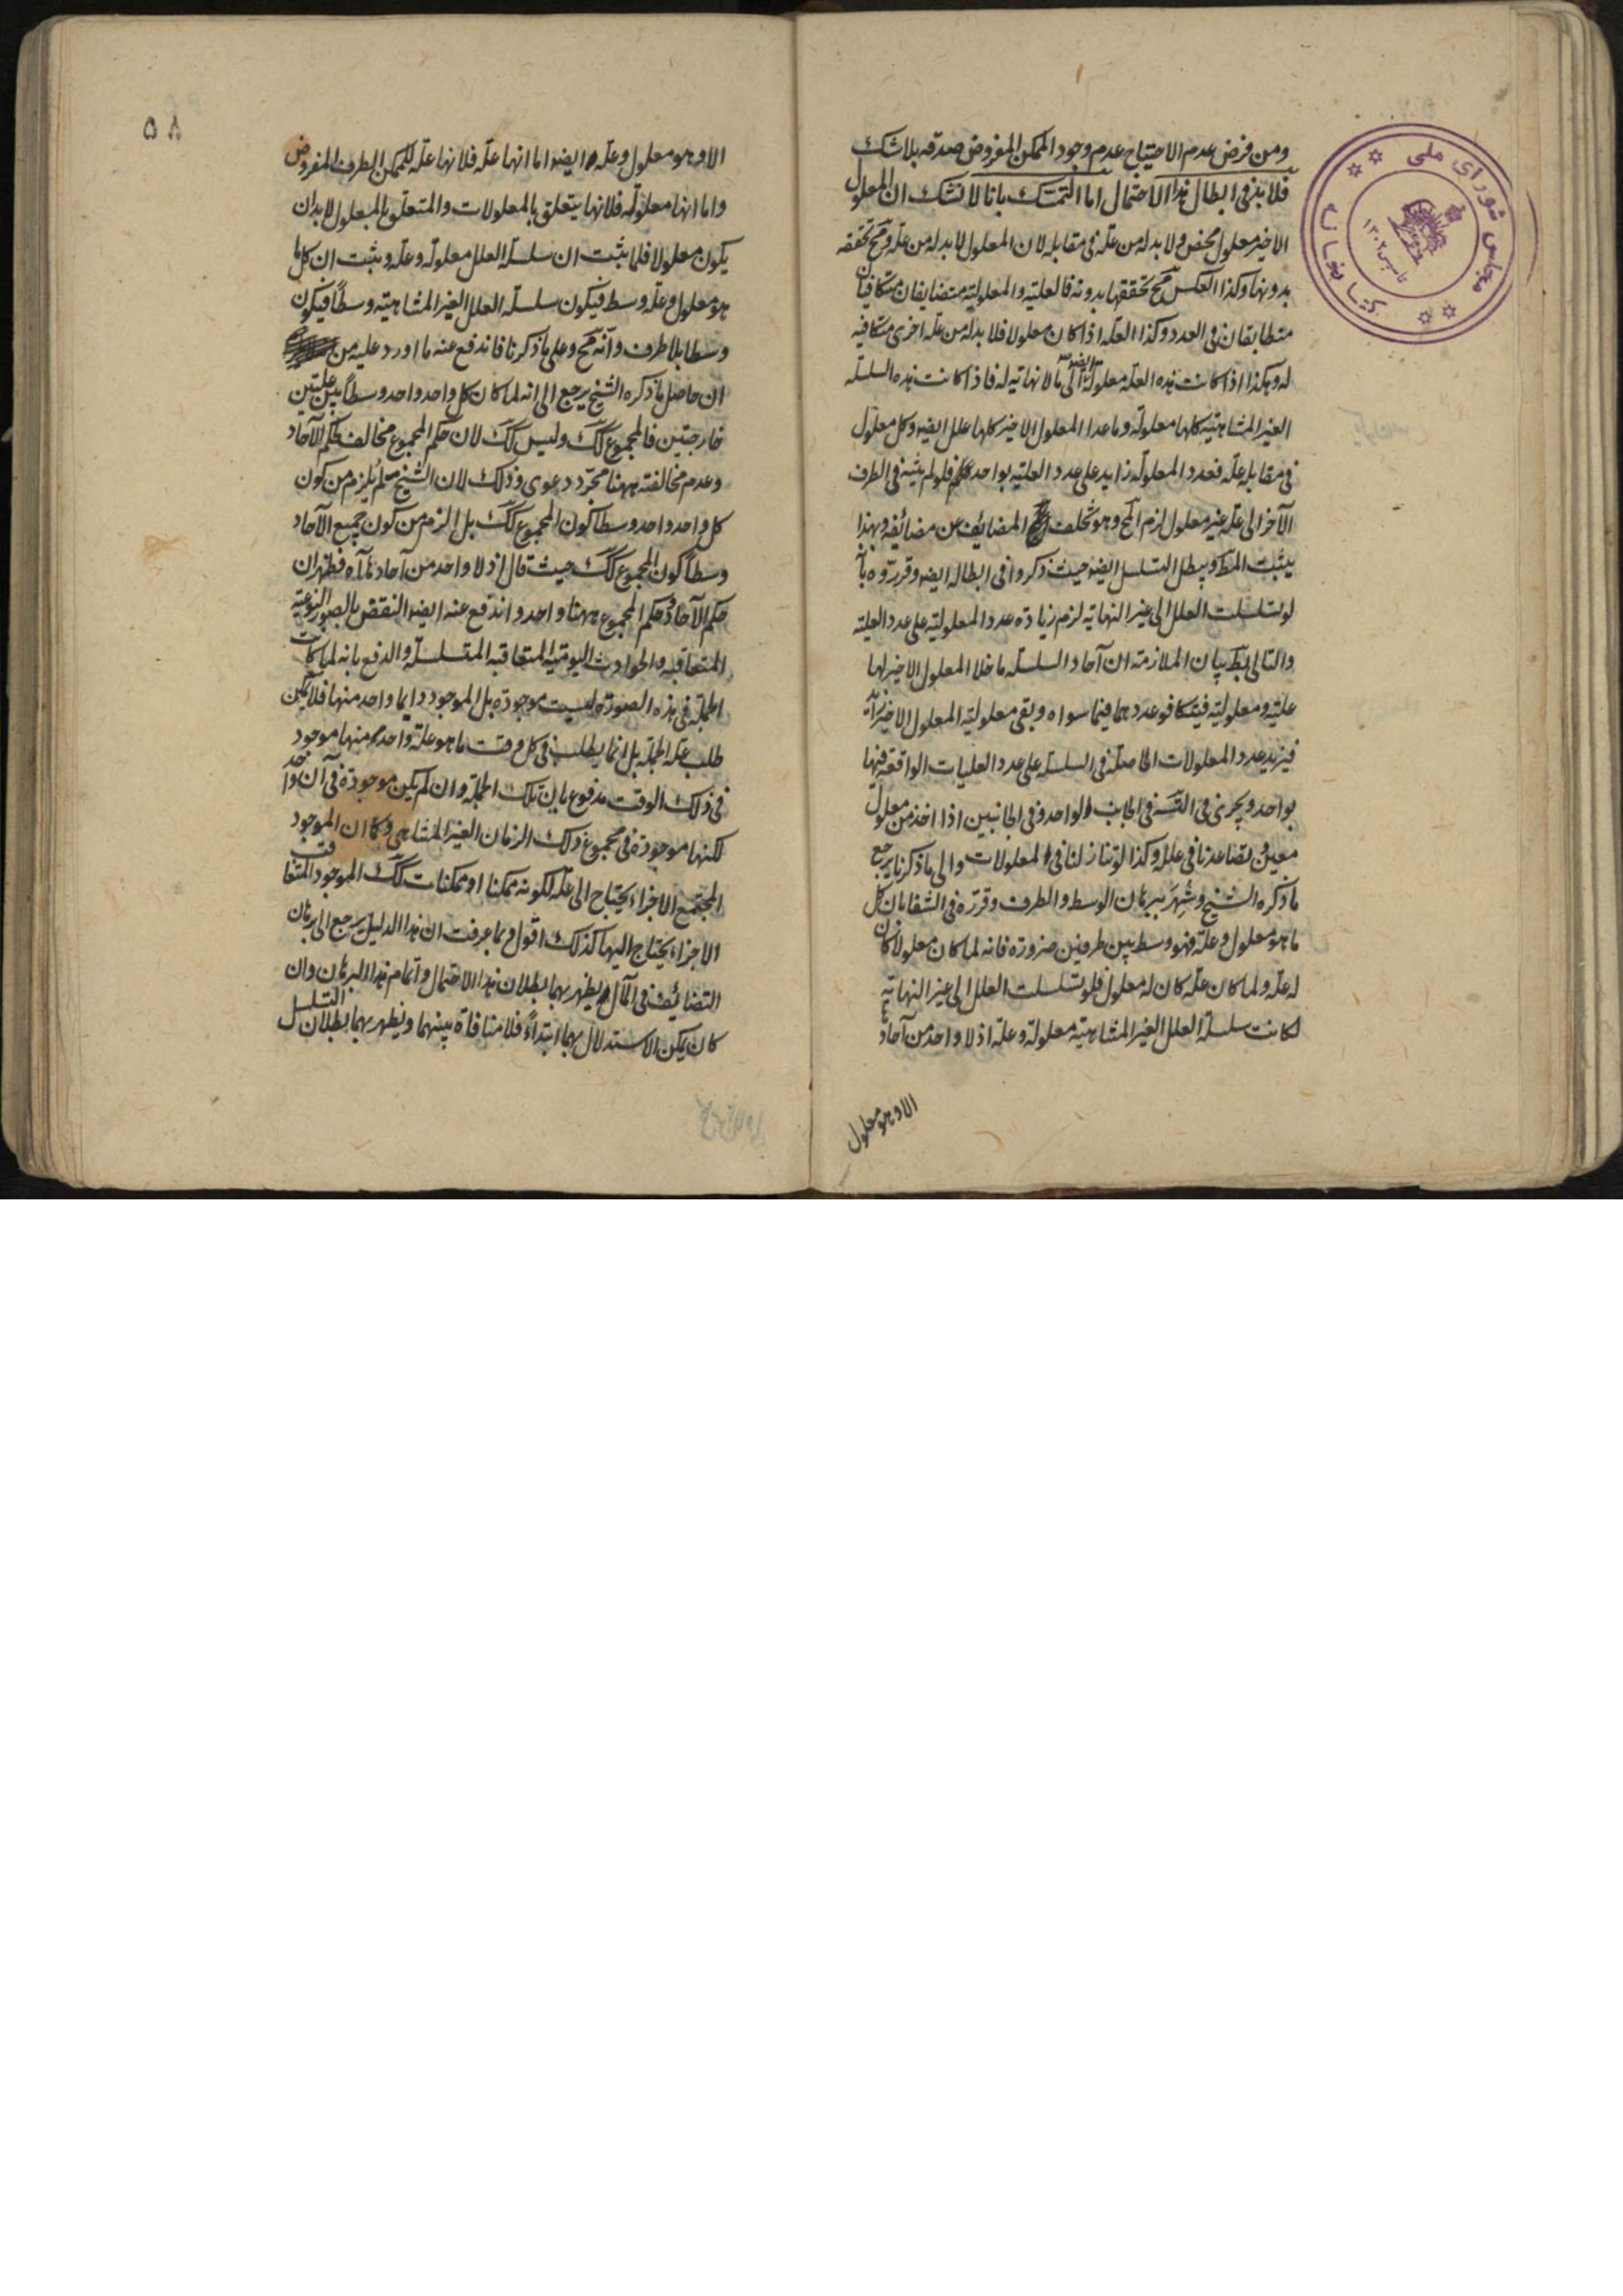 ومن فرض عدم الاحتياج عدم وجود الممكن المفروض صدقه بلاشك
فلابد فى ابطال هذا الاحتمال اما التمسك بانا لا نشك ان المعلول
الاخير معلول محض ولا بد له من علة فى مقابله لان المعلول لابد له من علة ومح تحققه
بدونها وكذا العكس مح تحققها بدونه فالعلية والمعلولية متضايفان متكافيان
متطابقان فى العدد وكذا العلة اذا كان معلولا فلا بد له من علة اخرى متكافية
له وهكذا اذا كانت هذه العلة معلولة ايضا الى ما لا نهاية له فاذا كانت هذه السلسلة
الغير المتناهية كلها معلولة وما عدا المعلول الاخير كلها علل ايضه وكل معلول
فى مقابله علة فعدد المعلولة زايد على عدد العلية بواحد فلو لم ينته فى الطرف
الآخر الى علة غير معلول لزم المح وهو تخلف المضائف عن مضائفه وبهذا
يثبت المط ويبطل التسلسل ايضه حيث ذكروا فى ابطاله ايضه وقرروه بانه
لو تسلسلت العلل الى غير النهاية لزم زيادة عدد المعلولية على عدد العلية
والتالى بط بيان الملازمة ان آحاد السلسلة ما خلا المعلول الاخير لها
علية ومعلولية فيتكافو عددهما فيما سواه وبقى معلولية المعلول الاخير زايدة
فيزيد عدد المعلولات الحاصلة فى السلسلة على عدد العليات الواقعة فيها
بواحد ويجرى فى التس فى الجانب الواحد وفى الجانبين اذا اخذ من معلول
معين وتصاعدنا فى علله وكذا لو تنازلنا فى المعلولات والى ما ذكرنا يرجع
ما ذكره الشيخ وشهر ببرهان الوسط والطرف وقرره فى الشفا بان كل
ما هو معلول وعلة فهو وسط بين طرفين ضرورة فانه لما كان معلولا كان
له علة ولما كان علة كان له معلول فلو تسلسلت العلل الى غير النهاية
لكانت سلسلة العلل الغير المتناهية معلولة وعلة اذ لا واحد من آحادها
الا وهو معلول
٥٨
الا وهو معلول وعلة ايضه اما انها علة فلانها علة للممكن الطرف المفروض
واما انها معلولة فلانها يتعلق بالمعلولات والمتعلق بالمعلول لابد ان
يكون معلولا فلما ثبت ان سلسلة العلل معلولة وعلة وثبت ان كل ما
هو معلول وعلة وسط فيكون سلسلة العلل الغير المتناهية وسطا فيكون
وسطا بلا طرف وانه مح وعلى ما ذكرنا فاندفع عنه ما اورد عليه من
ان حاصل ما ذكره الشيخ يرجع الى انه لما كان كل واحد واحد وسطا بين علتين
خارجتين فالمجموع كك وليس كك لان حكم المجموع مخالف لحكم الآحاد
وعدم مخالفته ههنا مجرد دعوى وذلك لان الشيخ لم يلزم من كون
كل واحد واحد وسطا كون المجموع كك بل الزم من كون جميع الآحاد
وسطا كون المجموع كك حيث قال اذ لا واحد من آحادها آه فظهر ان
حكم الآحاد وحكم المجموع ههنا واحد واندفع عنه ايضه النقض بالصور النوعية
المتعاقبة والحوادث اليومية المتعاقبة المتسلسلة والدفع بانه لما كانت
الجملة فى هذه الصورة ليست موجودة بل الموجود دايما واحد منها فلا يمكن
طلب علة الجملة بل انما يطلب فى كل وقت ما هو علة واحد منها موجود
فى ذلك الوقت مدفوع بان تلك الجملة وان لم يكن موجودة فى آن واحد
لكنها موجودة فى مجموع ذلك الزمان الغير المتناهى وكما ان الموجود
المجتمع الاجزاء يحتاج الى علة لكونه ممكنا او ممكنات كك الموجود المتعاقب
الاجزاء يحتاج اليها كذلك اقول وبما عرفت ان هذا الدليل يرجع الى برهان
التضائف فى المآل يظهر بهما بطلان هذا الاحتمال واتمام هذا البرهان وان
كان يمكن الاستدلال بهما ابتداءً فلا منافاة بينهما ويظهر بهما بطلان التسلسل
مجلس شوراى ملى
كتابخانه
تاسيس ١٣٠٢